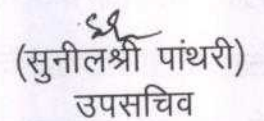 (सुनीलश्री पांथरी)
उपसचिव